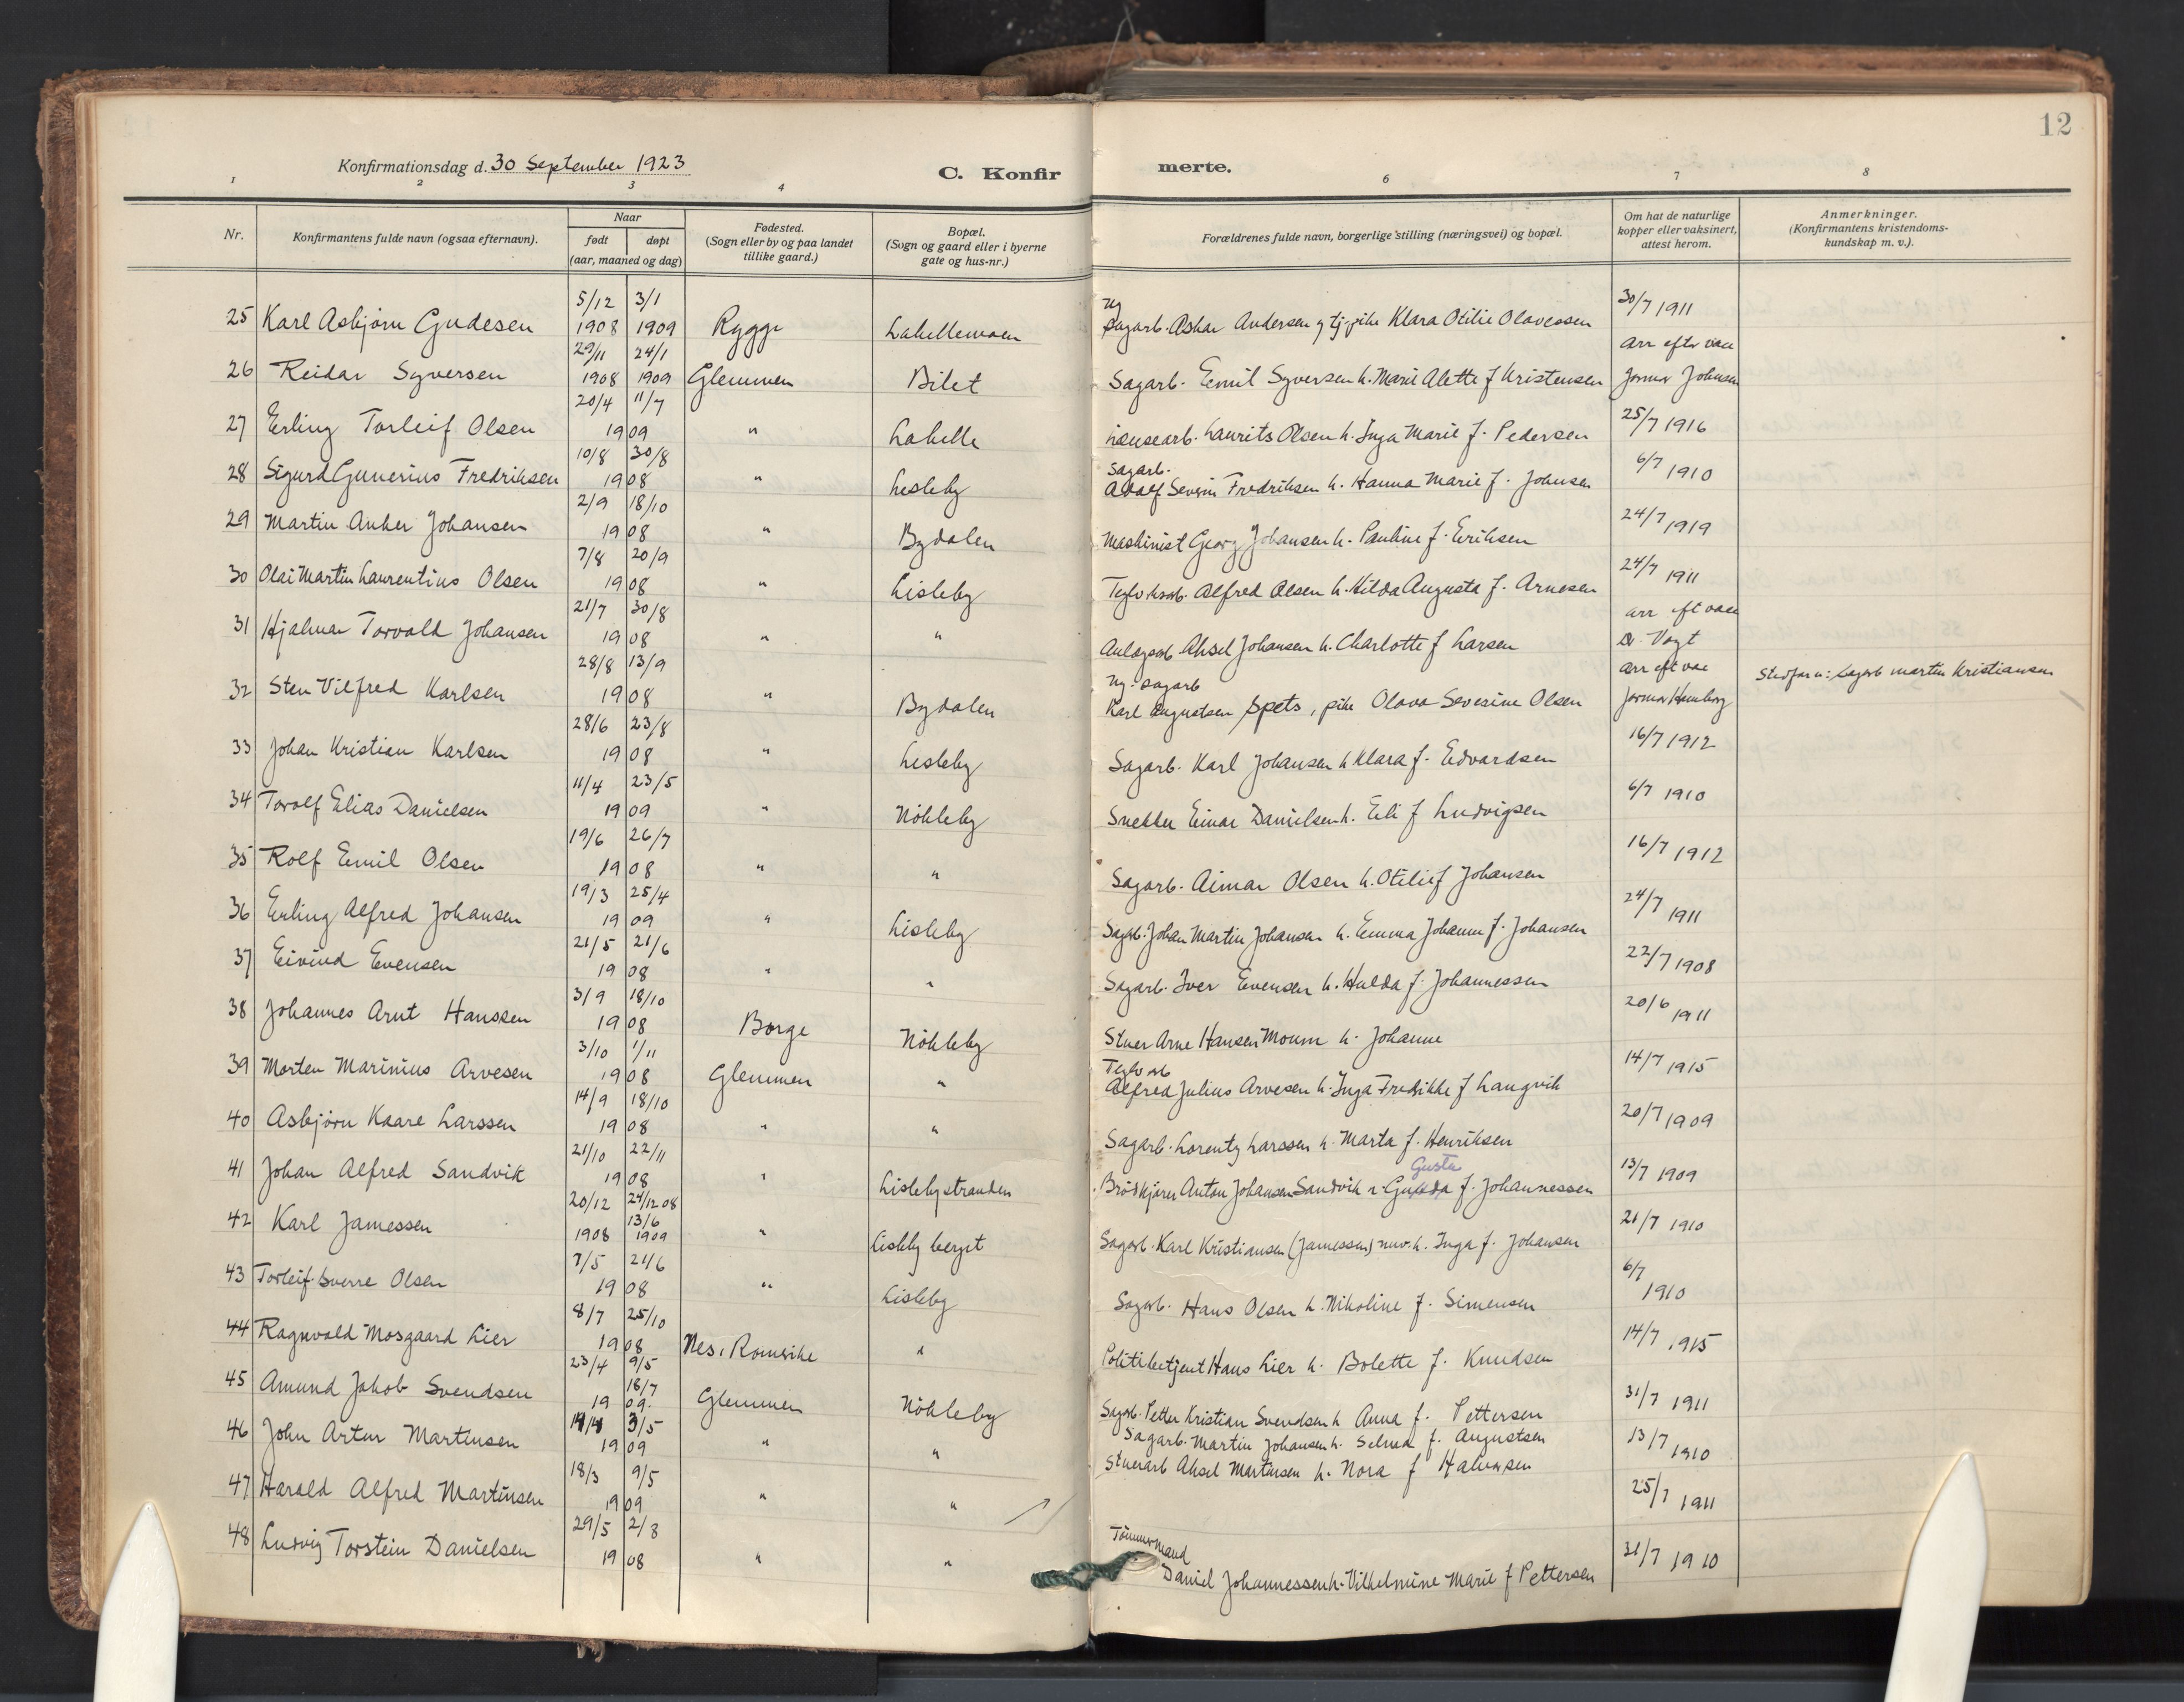 12
Konfirmationsdag d. 30 September 1923
C. Konfir merte.
1 2 3 4 6 7 8
Nr.
Konfirmantens fulde navn (ogsaa efternavn).
Naar
født døpt
(aar, maaned og dag)
Fødested.
(Sogn eller by og paa landet
tillike gaard.)
Bopæl.
(Sogn og gaard eller i byerne
gate og hus-nr.)
Forældrenes fulde navn, borgerlige stilling (næringsvei) og bopæl.
Om hat de naturlige
kopper eller vaksinert,
attest herom.
Anmerkninger.
(Konfirmantens kristendoms-
kundskap m. v.).
5/12 3/1 Ug 30/7 1911
25 Karl Asbjørn Gudesen 1908 1909 Rygge Labellemoen Sagarb. Askar Andersen og tj.pike Klara Otilie Olavessen
29/11 24/1 arr efter vacc
26 Reidar Syversen 1908 1909 Glemmen Bilet Sagarb. Emil Syversen h. Marie Alette f Kristensen Jormor Johnsen
20/4 11/7 25/7 1916
27 Erling Torleif Olsen 1909 " Labelle Lensearb. Laurits Olsen h. Inga Marie f. Pedersen
10/8 30/8 Sagarb. 6/7 1910
28 Sigurd Gunerius Fredriksen 1908 " Lisleby Adolf Severin Fredriksen h. Hanna Marie f. Johnsen
2/9 18/10 24/7 1919
29 Martin Anker Johansen 1908 " Bydalen Maskinist Georg Johansen h. Pauline f. Eriksen
7/8 20/9 24/7 1911
30 Olai Martin Laurentius Olsen 1908 " Lisleby Teglv.ksarb. Alfred Olsen h. Hilda Augusta f. Arnesen
21/7 30/8 arr eft vacc
31 Hjalmar Torvald Johansen 1908 " " Anlægsarb. Aksel Johansen h. Charlotte f Larsen Dr. Vogt
28/8 13/9 Ug. sagarb arr eft vac Stedfar n: Sagarb Martin Kristiansen
32 Sten Vilfred Karlsen 1908 " Bydalen Karl Augustsen Spets, pike Olava Severine Olsen Jormor Hemberg
28/6 23/8 16/7 1912
33 Johan Kristian Karlsen 1908 " Lisleby Sagarb. Karl Johansen h Klara f. Edvardsen
11/4 23/5 6/7 1910
34 Torolf Elias Danielsen 1909 " Nökleby Snekker Einar Danielsen h. Eli f Ludvigsen
19/6 26/7 16/7 1912
35 Rolf Emil Olsen 1908 " " Sagarb. Aimar Olsen h. Otilie f Johansen
19/3 25/4 24/7 1911
36 Erling Alfred Johansen 1909 " Lisleby Sagarb. Johan Martin Johansen h. Emma Johanne f. Johansen
21/5 21/6 22/7 1908
37 Eivind Evensen 1908 " " Sagarb. Iver Evensen h. Hulda f. Johannessen
3/9 18/10 20/6 1911
38 Johannes Arnt Hanssen 1908 Borge Nökleby Stuer Arne Hansen Moum h. Johanne
3/10 1/11 Teglv.arb 14/7 1915
39 Morten Marinius Arvesen 1908 Glemmen " Alfred Julius Arvesen h. Inga Fredrikke f Langvik
14/9 18/10 20/7 1909
40 Asbjörn Kaare Larssen 1908 " " Sagarb. Lorentz Larssen h. Marta f. Henriksen
21/10 22/11 Gusta 13/7 1909
41 Johan Alfred Sandvik 1908 " Lislebystranden Brödkjörer Anton Johansen Sandvik h. Gunda f. Johannessen
20/12 24/12 08 21/7 1910
42 Karl Jamessen 1908 13/6 1909 " Lisleby berget Sagarb. Karl Kristiansen (Jamessen) nuv. h. Inga f. Johansen
7/5 21/6 6/7 1910
43 Torleif Sverre Olsen 1908 " Lisleby Sagarb. Hans Olsen h. Nikoline f. Simensen
8/7 25/10 14/7 1915
44 Ragnvald Mosgaard Lier 1908 Nes, Romerike " Politibetjent Hans Lier h. Bolette f. Knudsen
23/4 9/5 18/7 31/7 1911
45 Amund Jakob Svendsen 1909. Glemmen Nökleby Sagarb. Petter Kristian Svendsen h Anna f. Pettersen
14/4 3/5 Sagarb. Martin Johansen h. Selma f. Augustsen 13/7 1910
46 John Artur Martinsen 1909 " " Stuerarb Aksel Martinsen h. Nora f Halvorsen
18/3 9/5 25/7 1911
47 Harald Alfred Martinsen 1909 " "
29/5 2/8 Tömmermand 31/7 1910
48 Ludvig Torstein Danielsen 1908 " " Daniel Johannessen h. Vilhelmine Marie f Pettersen